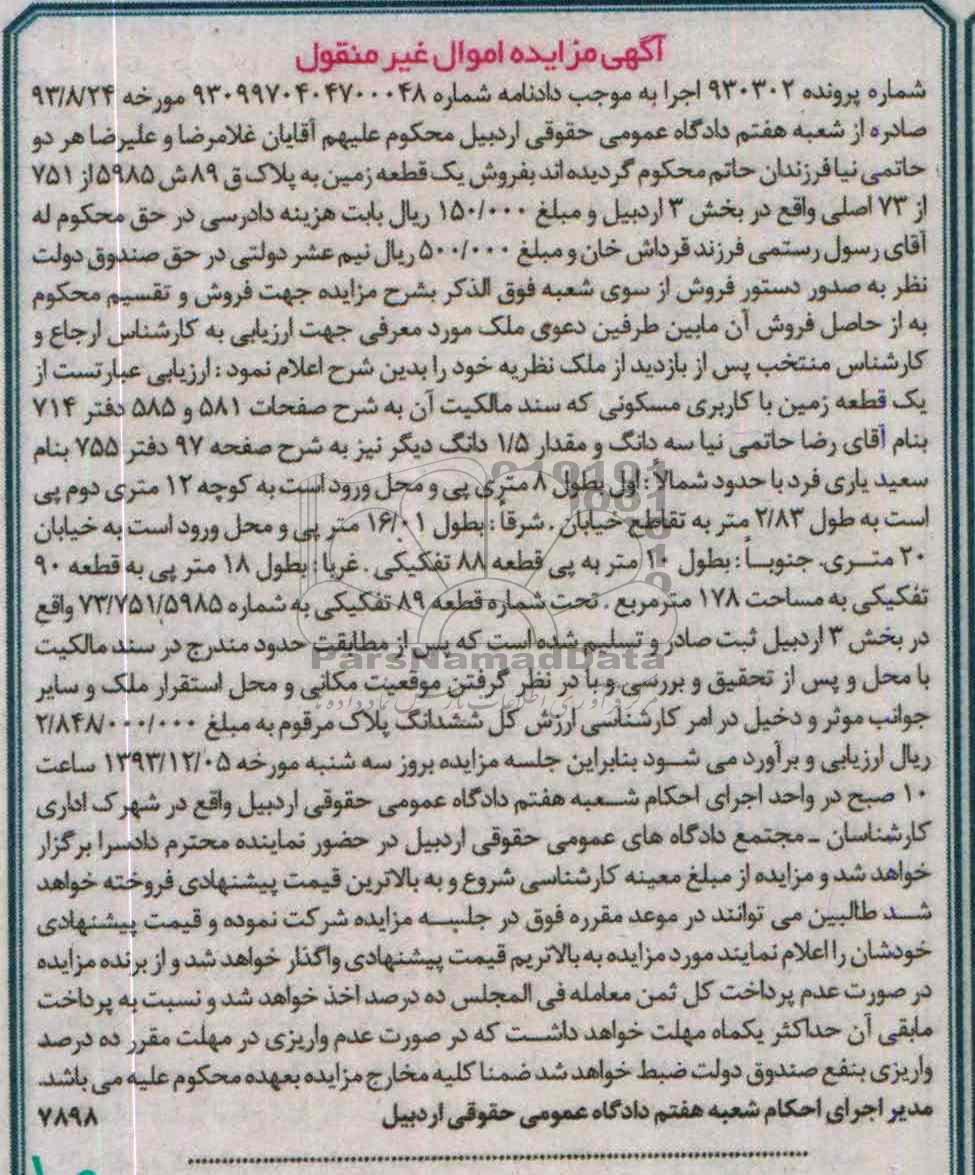 آگهی مزایده اموال غیر منقول
شماره پرونده ۹۳۰۳۰۲ اجرا به موجب دادنامه شماره ۹۳۰۹۹۷۰۴۰۴۷۰۰۰۴۸ مورخه ۹۳/۸/۲۴
صادره از شعبه هفتم دادگاه عمومی حقوقی اردبیل محکوم علیهم آقایان غلامرضا و علیرضا هر دو
حاتمی نیا فرزندان حاتم محکوم گردیده اند بفروش یک قطعه زمین به پلاک ق ۸۹ ش ۵۹۸۵ از ۷۵۱
از ۷۳ اصلی واقع در بخش ۳ اردبیل و مبلغ ۱۵۰/۰۰۰ ریال بابت هزینه دادرسی در حق محکوم له
آقای رسول رستمی فرزند قرداش خان و مبلغ ۵۰۰/۰۰۰ ریال نیم عشر دولتی در حق صندوق دولت
نظر به صدور دستور فروش از سوی شعبه فوق الذکر بشرح مزایده جهت فروش و تقسیم محکوم
به از حاصل فروش آن مابین طرفین دعوی ملک مورد معرفی جهت ارزیابی به کارشناس ارجاع و
کارشناس منتخب پس از بازدید از ملک نظریه خود را بدین شرح اعلام نمود : ارزیابی عبارتست از
یک قطعه زمین با کاربری مسکونی که سند مالکیت آن به شرح صفحات ۵۸۱ و ۵۸۵ دفتر ۷۱۴
بنام آقای رضا حاتمی نیا سه دانگ و مقدار ۱/۵ دانگ دیگر نیز به شرح صفحه ۹۷ دفتر ۷۵۵ بنام
سعید یاری فرد با حدود شمالاً : اول بطول ۸ متری پی و محل ورود است به کوچه ۱۲ متری دوم پی
است به طول ۲/۸۳ متر به تقاطع خیابان . شرقاً : بطول ۱۶/۰۱ متر پی و محل ورود است به خیابان
۲۰ متـری. جنوبـاً : بطول ۱۰ متر به پی قطعه ۸۸ تفکیکی . غرباً : بطول ۱۸ متر پی به قطعه ۹۰
تفکیکی به مساحت ۱۷۸ مترمربع . تحت شماره قطعه ۸۹ تفکیکی به شماره ۷۳/۷۵۱/۵۹۸۵ واقع
در بخش ۳ اردبیل ثبت صادر و تسلیم شده است که پس از مطابقت حدود مندرج در سند مالکیت
ParsNamadData
با محل و پس از تحقیق و بررسی و با در نظر گرفتن موقعیت مکانی و محل استقرار ملک و سایر
جوانب موثر و دخیل در امر کارشناسی ارزش کل ششدانگ پلاک مرقوم به مبلغ ۲/۸۴۸/۰۰۰/۰۰۰
ریال ارزیابی و برآورد می شـود بنابراین جلسه مزایده بروز سه شنبه مورخه ۱۳۹۳/۱۲/۰۵ ساعت
۱۰ صبح در واحد اجرای احکام شـعبه هفتم دادگاه عمومی حقوقی اردبیل واقع در شهرک اداری
کارشناسان ـ مجتمع دادگاه های عمومی حقوقی اردبیل در حضور نماینده محترم دادسرا برگزار
خواهد شد و مزایده از مبلغ معینه کارشناسی شروع و به بالاترین قیمت پیشنهادی فروخته خواهد
شـد طالبین می توانند در موعد مقرره فوق در جلسـه مزایده شرکت نموده و قیمت پیشنهادی
خودشان را اعلام نمایند مورد مزایده به بالاتریم قیمت پیشنهادی واگذار خواهد شد و از برنده مزایده
در صورت عدم پرداخت کل ثمن معامله فی المجلس ده درصد اخذ خواهد شد و نسبت به پرداخت
مابقی آن حداکثر یکماه مهلت خواهد داشـت که در صورت عدم واریزی در مهلت مقرر ده درصد
واریزی بنفع صندوق دولت ضبط خواهد شد ضمنا کلیه مخارج مزایده بعهده محکوم علیه می باشد.
مدیر اجرای احکام شعبه هفتم دادگاه عمومی حقوقی اردبیل ۷۸۹۸